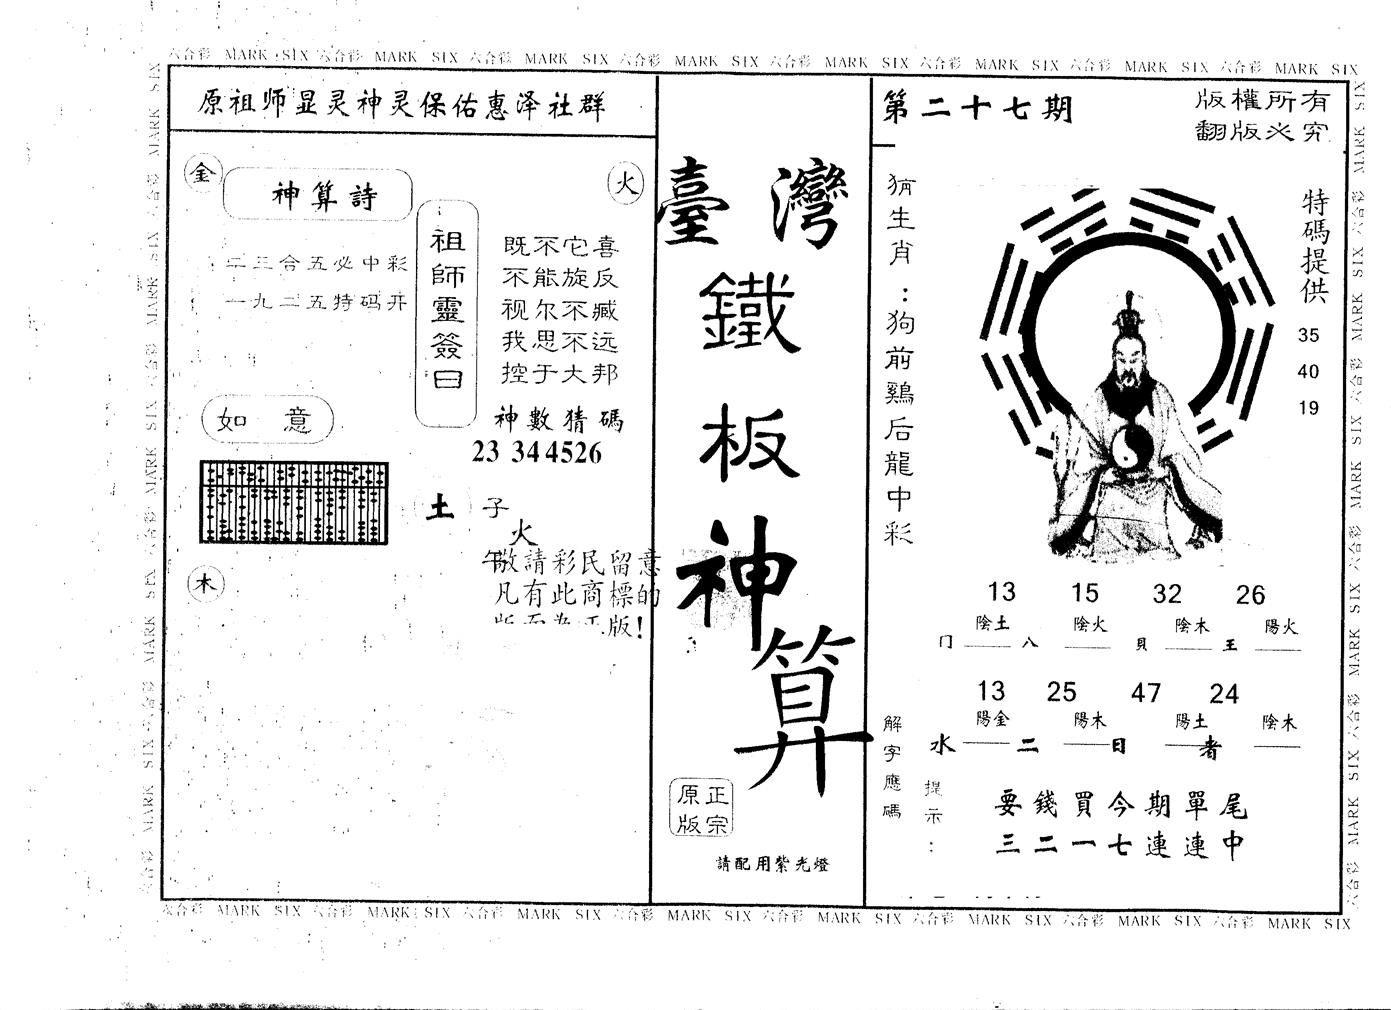 六合彩 MARK SIX 六合彩 MARK SIX 六合彩 MARK SIX 六合彩 MARK SIX 六合彩 MARK SIX 六合彩 MARK SIX 六合彩 MARK SIX 六合彩 MARK SIX
原祖师显灵神灵保佑惠泽社群
金
神算詩
火
二三合五必中彩
一九二五特码开
祖師靈簽曰
既不它喜
不能旋反
视尔不臧
我思不远
控于大邦
神數猜碼
23 344526
如意
土 子
火
午
敬請彩民留意
凡有此商標的
版!
木
臺灣
鐵
板
神
算
正宗
原版
請配用紫光燈
第二十七期
版權所有
翻版必究
猜生肖：狗前鷄后龍中彩
特碼提供
35
40
19
13 15 32 26
陰土 陰火 陰木 陽火
八 貝 王
13 25 47 24
陽金 陽木 陽土 陰木
水 二 日 者
解字應碼
提示：
要錢買今期單尾
三二一七連連中
六合彩 MARK SIX 六合彩 MARK SIX 六合彩 MARK SIX 六合彩 MARK SIX 六合彩 MARK SIX 六合彩 MARK SIX 六合彩 MARK SIX 六合彩 MARK SIX